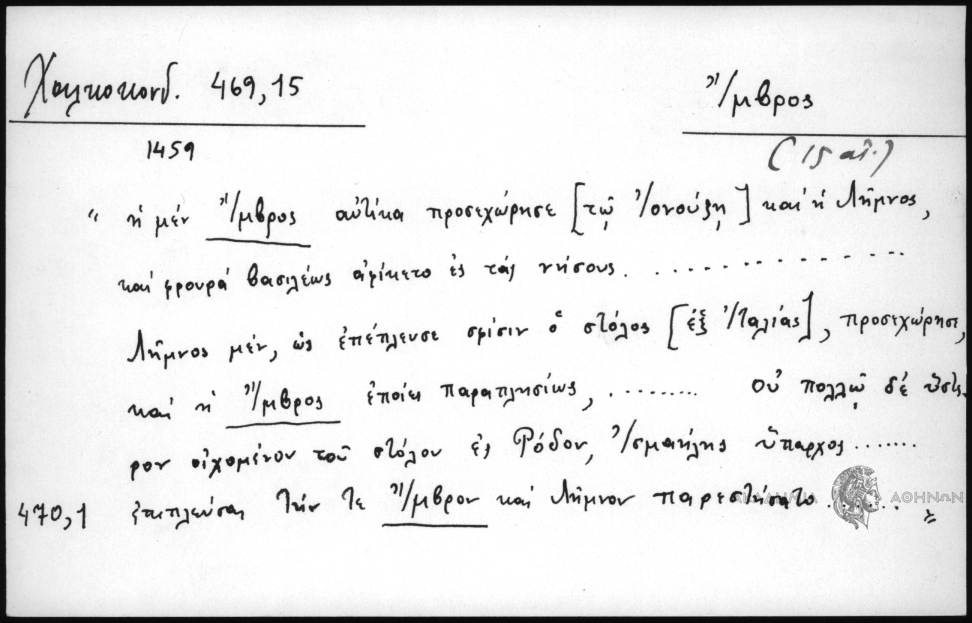 Χαλκοκονδ. 469,15
Ἴμβρος
1459
(15 αἰ.)
" ἡ μέν Ἴμβρος αὐτίκα προσεχώρησε [τῷ Ἰονούζῃ] καί ἡ Λῆμνος,
καί φρουρά βασιλέως ἀφίκετο ἐς τάς νήσους. . . . . . . . . . . . . . .
Λῆμνος μέν, ὡς ἐπέπλευσε σφίσιν ὁ στόλος [ἐξ Ἰταλίας], προσεχώρησε,
καί ἡ Ἴμβρος ἐποίει παραπλησίως, ......... Οὐ πολλῷ δέ ὕστε
ρον οἰχομένου τοῦ στόλου ἐς Ρόδον, Ἰσμαήλης ὕπαρχος .......
470,1 ἐπιπλεύσας τήν τε Ἴμβρον καί Λῆμνον παρεστήσατο ....... "
ΑΘΗΝΩΝ